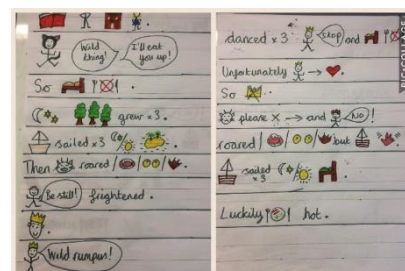 .
Wild thing! I'll eat you up!
So .
grew x 3 .
sailed x 3 .
Then roared / / .
Be still! frightened .
.
Wild rumpus!
danced x 3 Stop and
Unfortunately → .
So .
please x → and No!
roared / / / but .
sailed x 3 .
Luckily hot .
PIC•COLLAGE